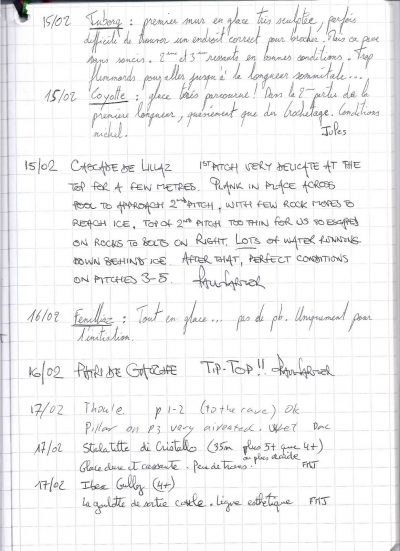 15/02 Tuborg : premier mur en glace très sculptée, parfois
difficile de trouver un endroit correct pour brocher. Mais ça passe
sans soucis. 2ème et 3ème ressauts en bonnes conditions. Trop
flemmards pour aller jusqu'à la longueur sommitale...
15/02 Coyotte : glace très parcourue! Dans la 2ème partie de la
première longueur, quasiment que du crochetage. Conditions
nickel.
Jules
15/02 CASCADE DE LILLAZ 1ST PITCH VERY DELICATE AT THE
TOP FOR A FEW METRES. PLANK IN PLACE ACROSS
POOL TO APPROACH 2ND PITCH, WITH FEW ROCK MOVES TO
REACH ICE, TOP OF 2ND PITCH TOO THIN FOR US SO ESCAPED
ON ROCKS TO BOLTS ON RIGHT. LOTS OF WATER RUNNING
DOWN BEHIND ICE. AFTER THAT, PERFECT CONDITIONS
ON PITCHES 3-5.
16/02 Fenilliaz : Tout en glace... pas de pb. Uniquement pour
l'initiation.
16/02 PATRI DE GAUCHE TIP-TOP!!
17/02 Thoule p 1-2 (to the cave) Ok
Pillar on p3 very aireated. Wet
17/02 Stalattite di Cristallo (35m plus 5+ que 4+)
ou plus décidé
Glace dure et cassante. Peu de traces. FMJ
17/02 Ibex Gully (4+)
La goulotte de sortie. Ligne esthétique FMJ